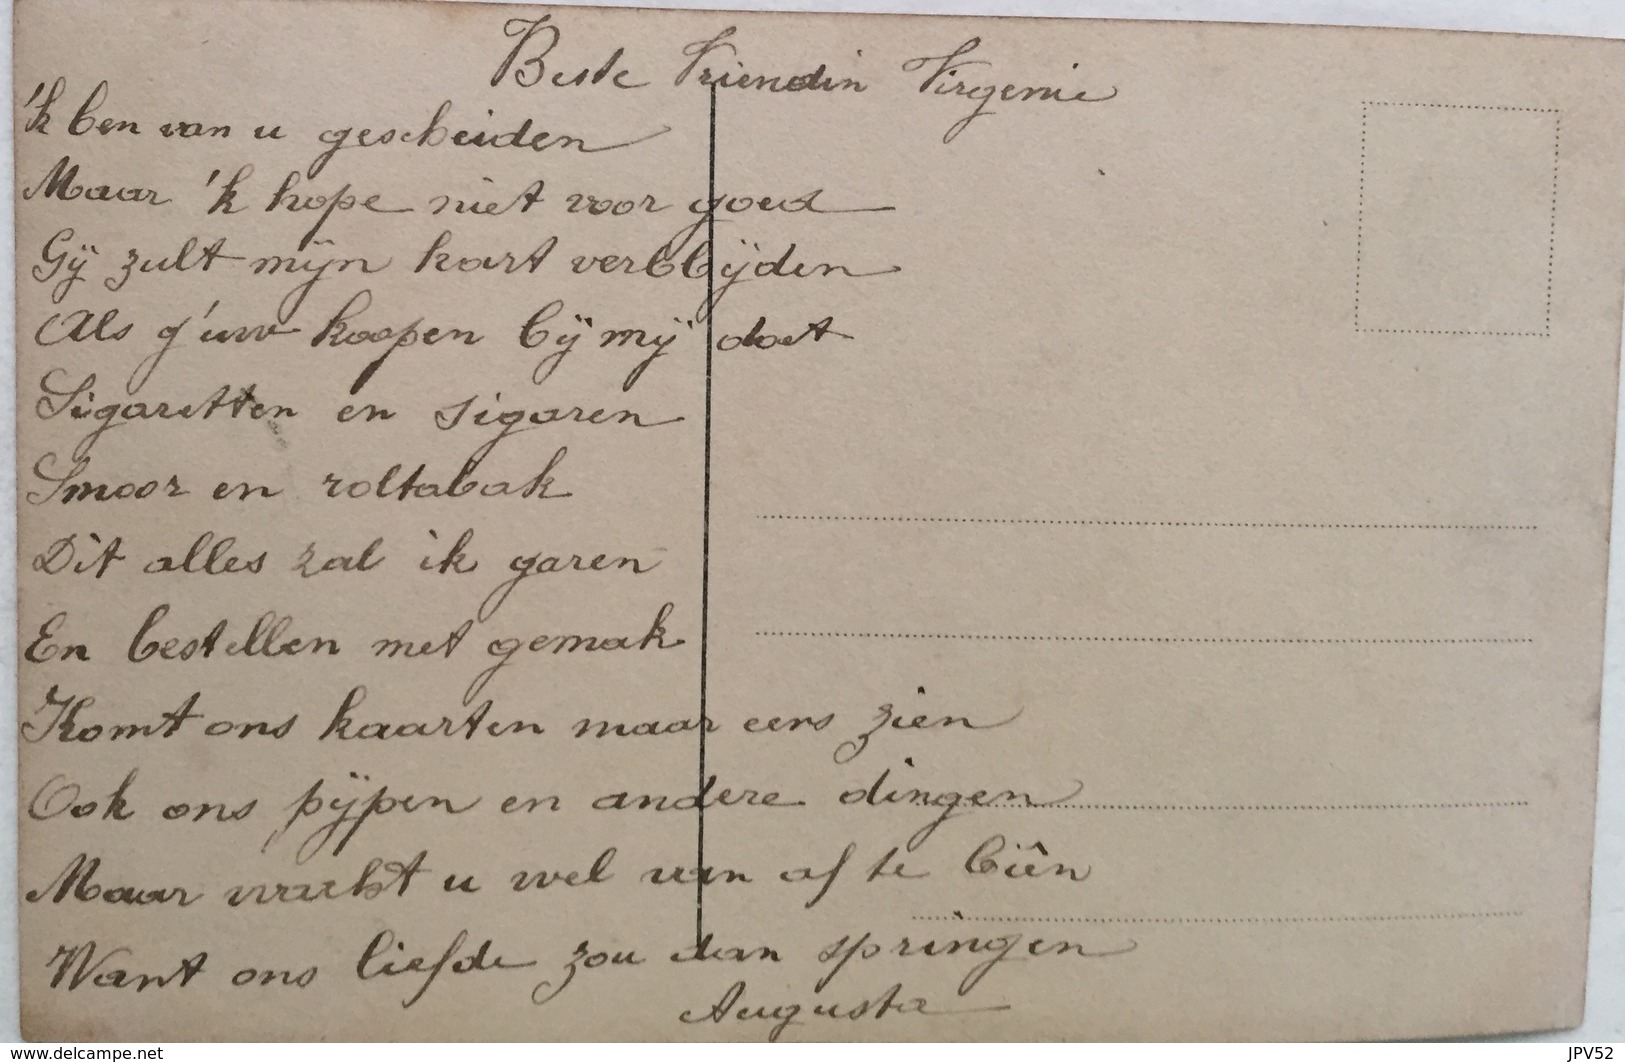 Beste Vriendin Virgenie
'k ben van u gescheiden
Maar 'k hope niet voor goed
Gij zult mijn hart verblijden
Als g'uw koopen bij mij doet
Sigaretten en sigaren
Smoor en roltabak
Dit alles zal ik garen
En bestellen met gemak
Komt ons kaarten maar eens zien
Ook ons pijpen en andere dingen
Maar wacht u wel van af te biên
Want ons liefde zou dan springen
Augusta
www.delcampe.net
JPV52